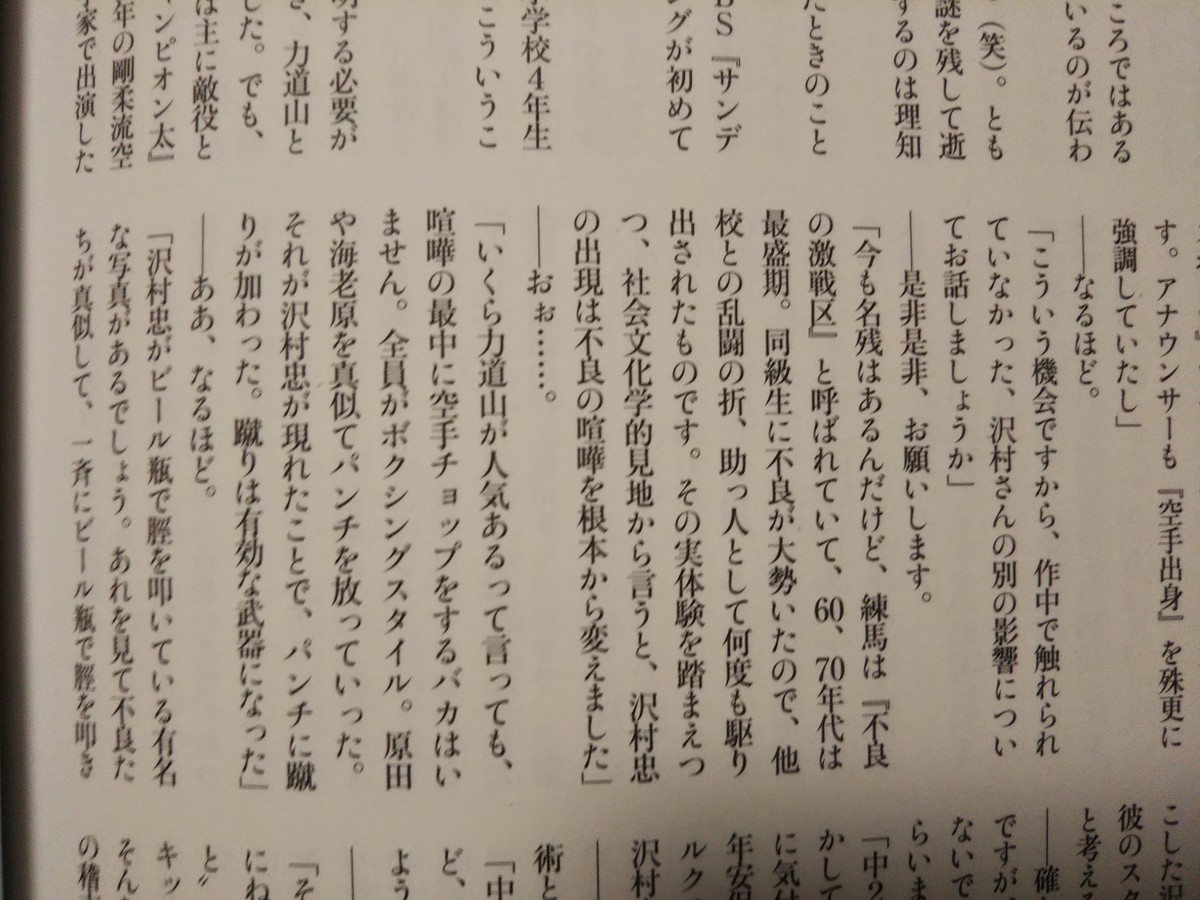 ころではある
いるのが伝わ
（笑）。とも
謎を残して逝
するのは理知
たときのこと
BS『サンデ
ングが初めて
学校4年生
こういうこ
明する必要が
き、力道山と
した。でも、
は主に敵役と
ンピオン太』
年の剛柔流空
家で出演した
す。アナウンサーも『空手出身』を殊更に
強調していたし」
――なるほど。
「こういう機会ですから、作中で触れられ
ていなかった、沢村さんの別の影響につい
てお話しましょうか」
――是非是非、お願いします。
「今も名残はあるんだけど、練馬は『不良
の激戦区』と呼ばれていて、60、70年代は
最盛期。同級生に不良が大勢いたので、他
校との乱闘の折、助っ人として何度も駆り
出されたものです。その実体験を踏まえつ
つ、社会文化学的見地から言うと、沢村忠
の出現は不良の喧嘩を根本から変えました」
――おぉ……。
「いくら力道山が人気あるって言っても、
喧嘩の最中に空手チョップをするバカはい
ません。全員がボクシングスタイル。原田
や海老原を真似てパンチを放っていった。
それが沢村忠が現れたことで、パンチに蹴
りが加わった。蹴りは有効な武器になった」
――ああ、なるほど。
「沢村忠がビール瓶で脛を叩いている有名
な写真があるでしょう。あれを見て不良た
ちが真似して、一斉にビール瓶で脛を叩き
こした沢
彼のスタ
と考える
――確
ですが
ないで
らいま
「中2
かして
に気付
年安保
ルク
沢村
――
術と
「中
ど、
よう
――
「そ
にね
と〟
キッ
そん
の稽